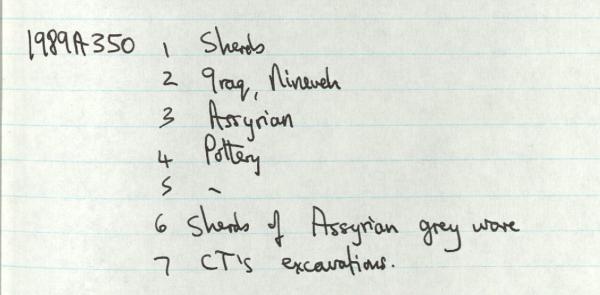 1989A350 1 Sherds
2 Iraq, Nineveh
3 Assyrian
4 Pottery
5 ~
6 Sherds of Assyrian grey ware
7 CT's excavations.